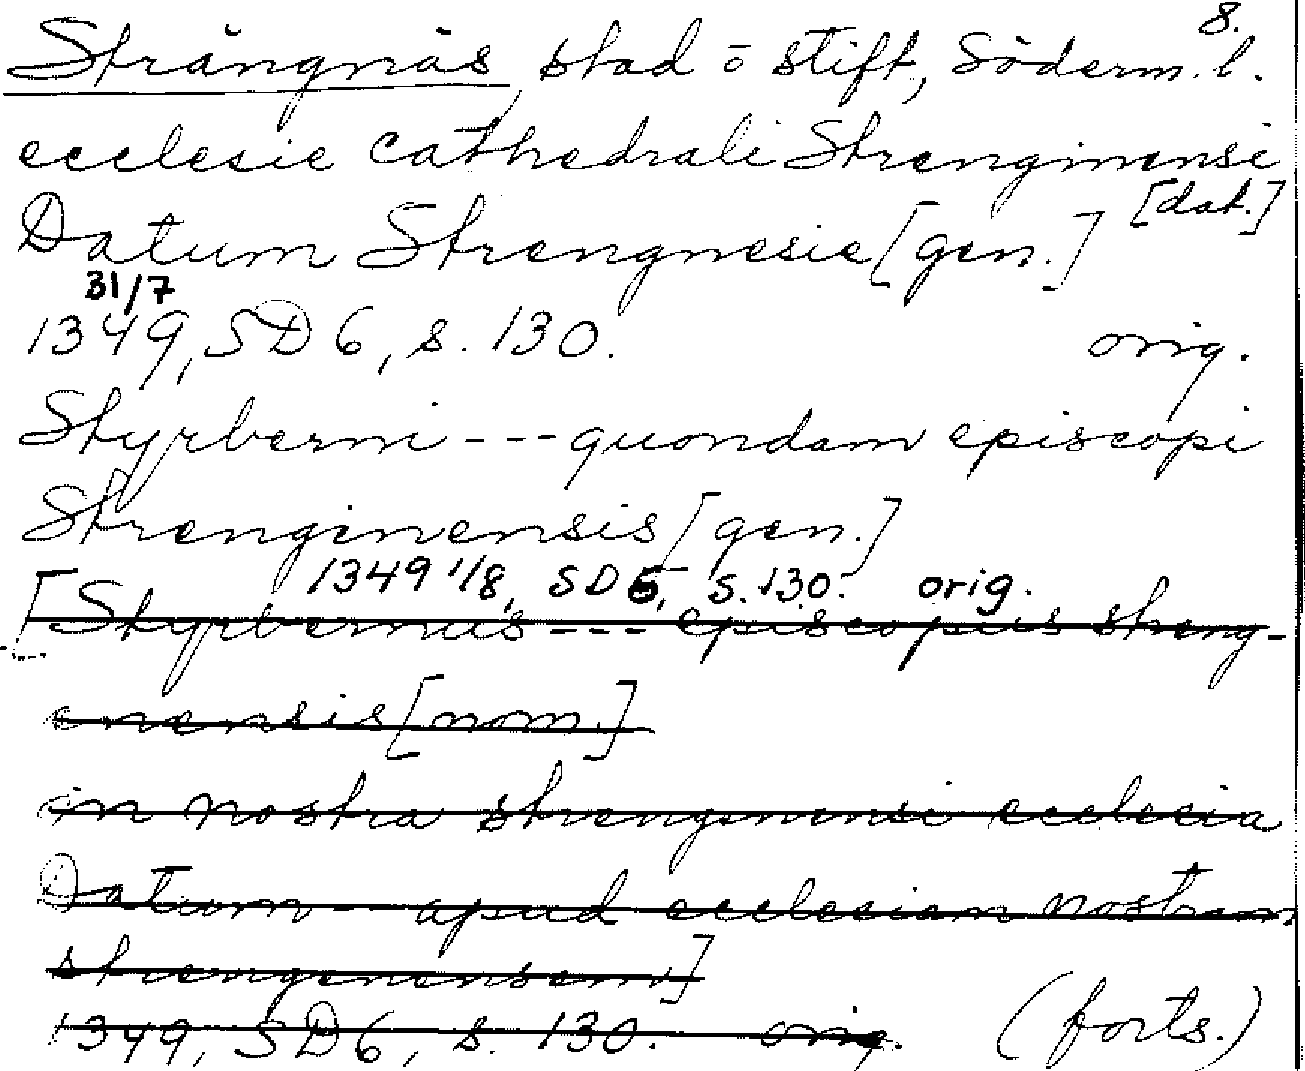 8.
Strängnäs, stad o stift, Söderm. l.
ecclesie cathedrali Strenginensi
[dat.]
Datum Strengnesie [gen.]
31/7
1349, SD 6, s. 130. orig.
Styrberni --- quondam episcopi
Strenginensis [gen.]
1349 1/8, SD 6, s. 130. orig.
[Styrbernus --- episcopus streng-
enensis [nom.]
in nostra strengenensi ecclesia
Datum -- apud ecclesiam nostram
strengenensem]
1349, SD 6, s. 130. orig. (forts.)